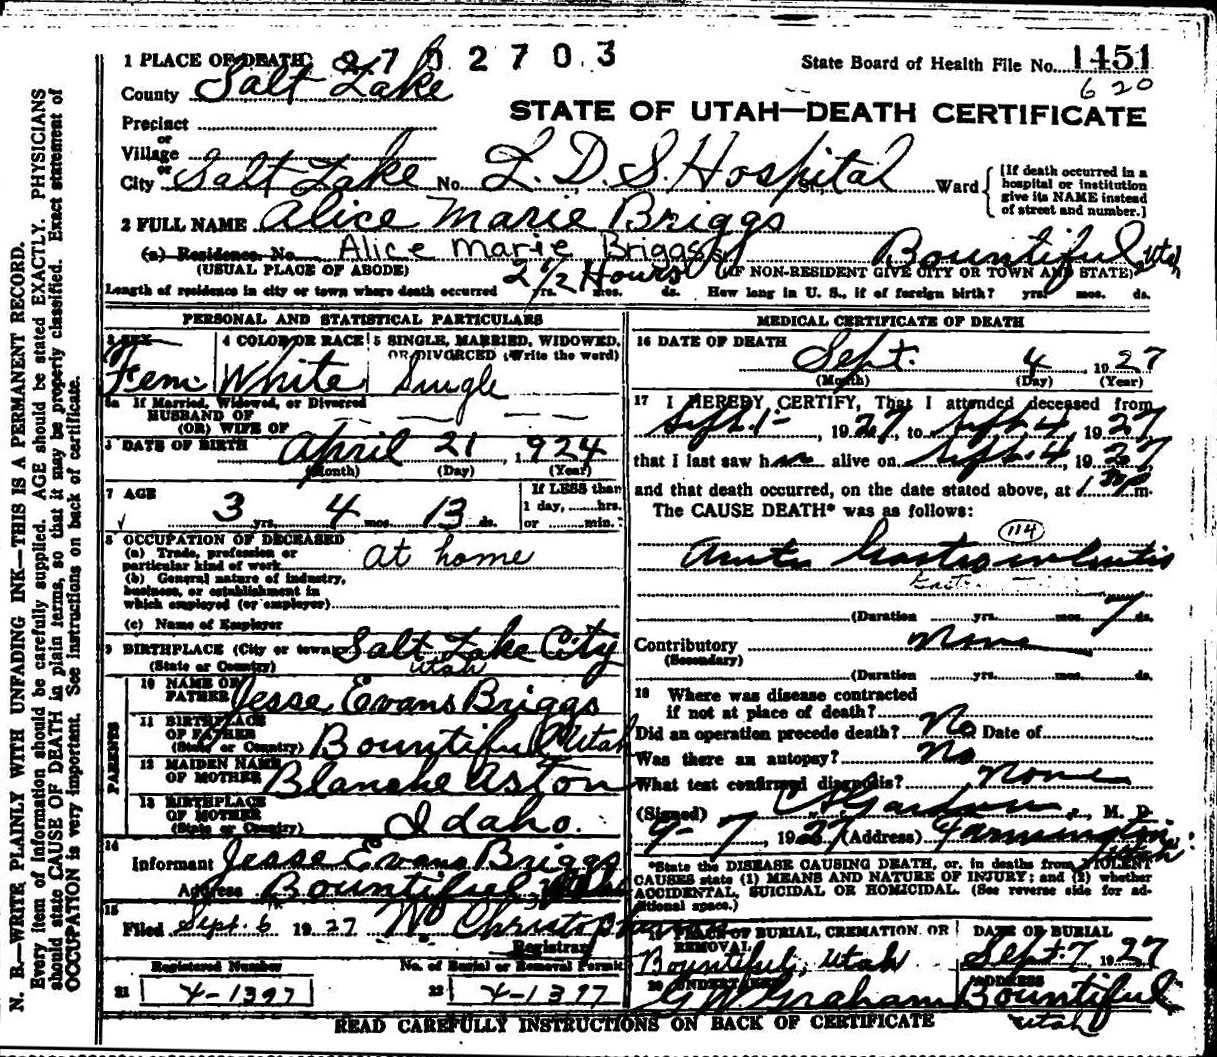 1 PLACE OF DEATH 2702703
State Board of Health File No. 1451
620
County Salt Lake
STATE OF UTAH—DEATH CERTIFICATE
Precinct
or
Village
or
City Salt Lake No. L. D. S. Hospital St., Ward
[If death occurred in a
hospital or institution
give its NAME instead
of street and number.]
2 FULL NAME Alice Marie Briggs
(a) Residence. No. Alice Marie Briggs St. Bountiful Utah
(USUAL PLACE OF ABODE) (IF NON-RESIDENT GIVE CITY OR TOWN AND STATE)
Length of residence in city or town where death occurred 2 1/2 Hours yrs. mos. ds. How long in U. S., if of foreign birth? yrs. mos. ds.
PERSONAL AND STATISTICAL PARTICULARS
3 SEX 4 COLOR OR RACE 5 SINGLE, MARRIED, WIDOWED,
OR DIVORCED (Write the word)
Fem White Single
5a If Married, Widowed, or Divorced
HUSBAND OF
(OR) WIFE OF
6 DATE OF BIRTH April 21, 1924
(Month) (Day) (Year)
7 AGE
3 yrs. 4 mos. 13 ds.
If LESS than
1 day, hrs.
or min.
8 OCCUPATION OF DECEASED
(a) Trade, profession or
particular kind of work at home
(b) General nature of industry,
business, or establishment in
which employed (or employer)
(c) Name of Employer
9 BIRTHPLACE (City or town) Salt Lake City
(State or Country) Utah
PARENTS
10 NAME OF
FATHER Jesse Evans Briggs
11 BIRTHPLACE
OF FATHER
(State or Country) Bountiful Utah
12 MAIDEN NAME
OF MOTHER Blanche Aston
13 BIRTHPLACE
OF MOTHER
(State or Country) Idaho.
14
Informant Jesse Evans Briggs
Address Bountiful, Utah
15
Filed Sept. 6 1927 Wm Christopherson
Registrar
Registered Number No. of Burial or Removal Permit
21 4-1397 22 4-1397
MEDICAL CERTIFICATE OF DEATH
16 DATE OF DEATH
Sept. 4, 1927
(Month) (Day) (Year)
17 I HEREBY CERTIFY, That I attended deceased from
Sept. 1-, 1927, to Sept. 4, 1927
that I last saw her alive on Sept. 4, 1927
and that death occurred, on the date stated above, at 1 30 p m.
The CAUSE DEATH* was as follows:
114
Gastro
(Duration yrs. mos. 7 ds.
Contributory None
(Secondary)
(Duration yrs. mos. ds.
18 Where was disease contracted
if not at place of death?
Did an operation precede death? No Date of
Was there an autopsy? No
What test confirmed diagnosis? None
(Signed) , M. D.
9-7, 1927 (Address) Farmington Utah.
*State the DISEASE CAUSING DEATH, or, in deaths from VIOLENT
CAUSES state (1) MEANS AND NATURE OF INJURY; and (2) whether
ACCIDENTAL, SUICIDAL OR HOMICIDAL. (See reverse side for ad-
ditional space.)
19 PLACE OF BURIAL, CREMATION, OR REMOVAL DATE OF BURIAL
Bountiful, Utah Sept. 7 1927
20 UNDERTAKER ADDRESS
G W Graham Bountiful
Utah
READ CAREFULLY INSTRUCTIONS ON BACK OF CERTIFICATE
N. B.—WRITE PLAINLY WITH UNFADING INK—THIS IS A PERMANENT RECORD.
Every item of information should be carefully supplied. AGE should be stated EXACTLY. PHYSICIANS
should state CAUSE OF DEATH in plain terms, so that it may be properly classified. Exact statement of
OCCUPATION is very important. See instructions on back of certificate.